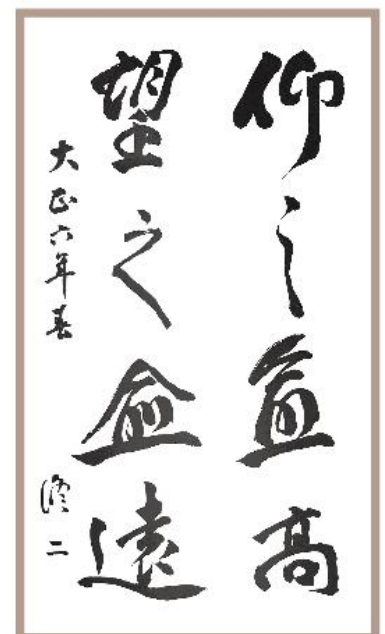 仰之益高
望之愈遠
大正六年春
修二